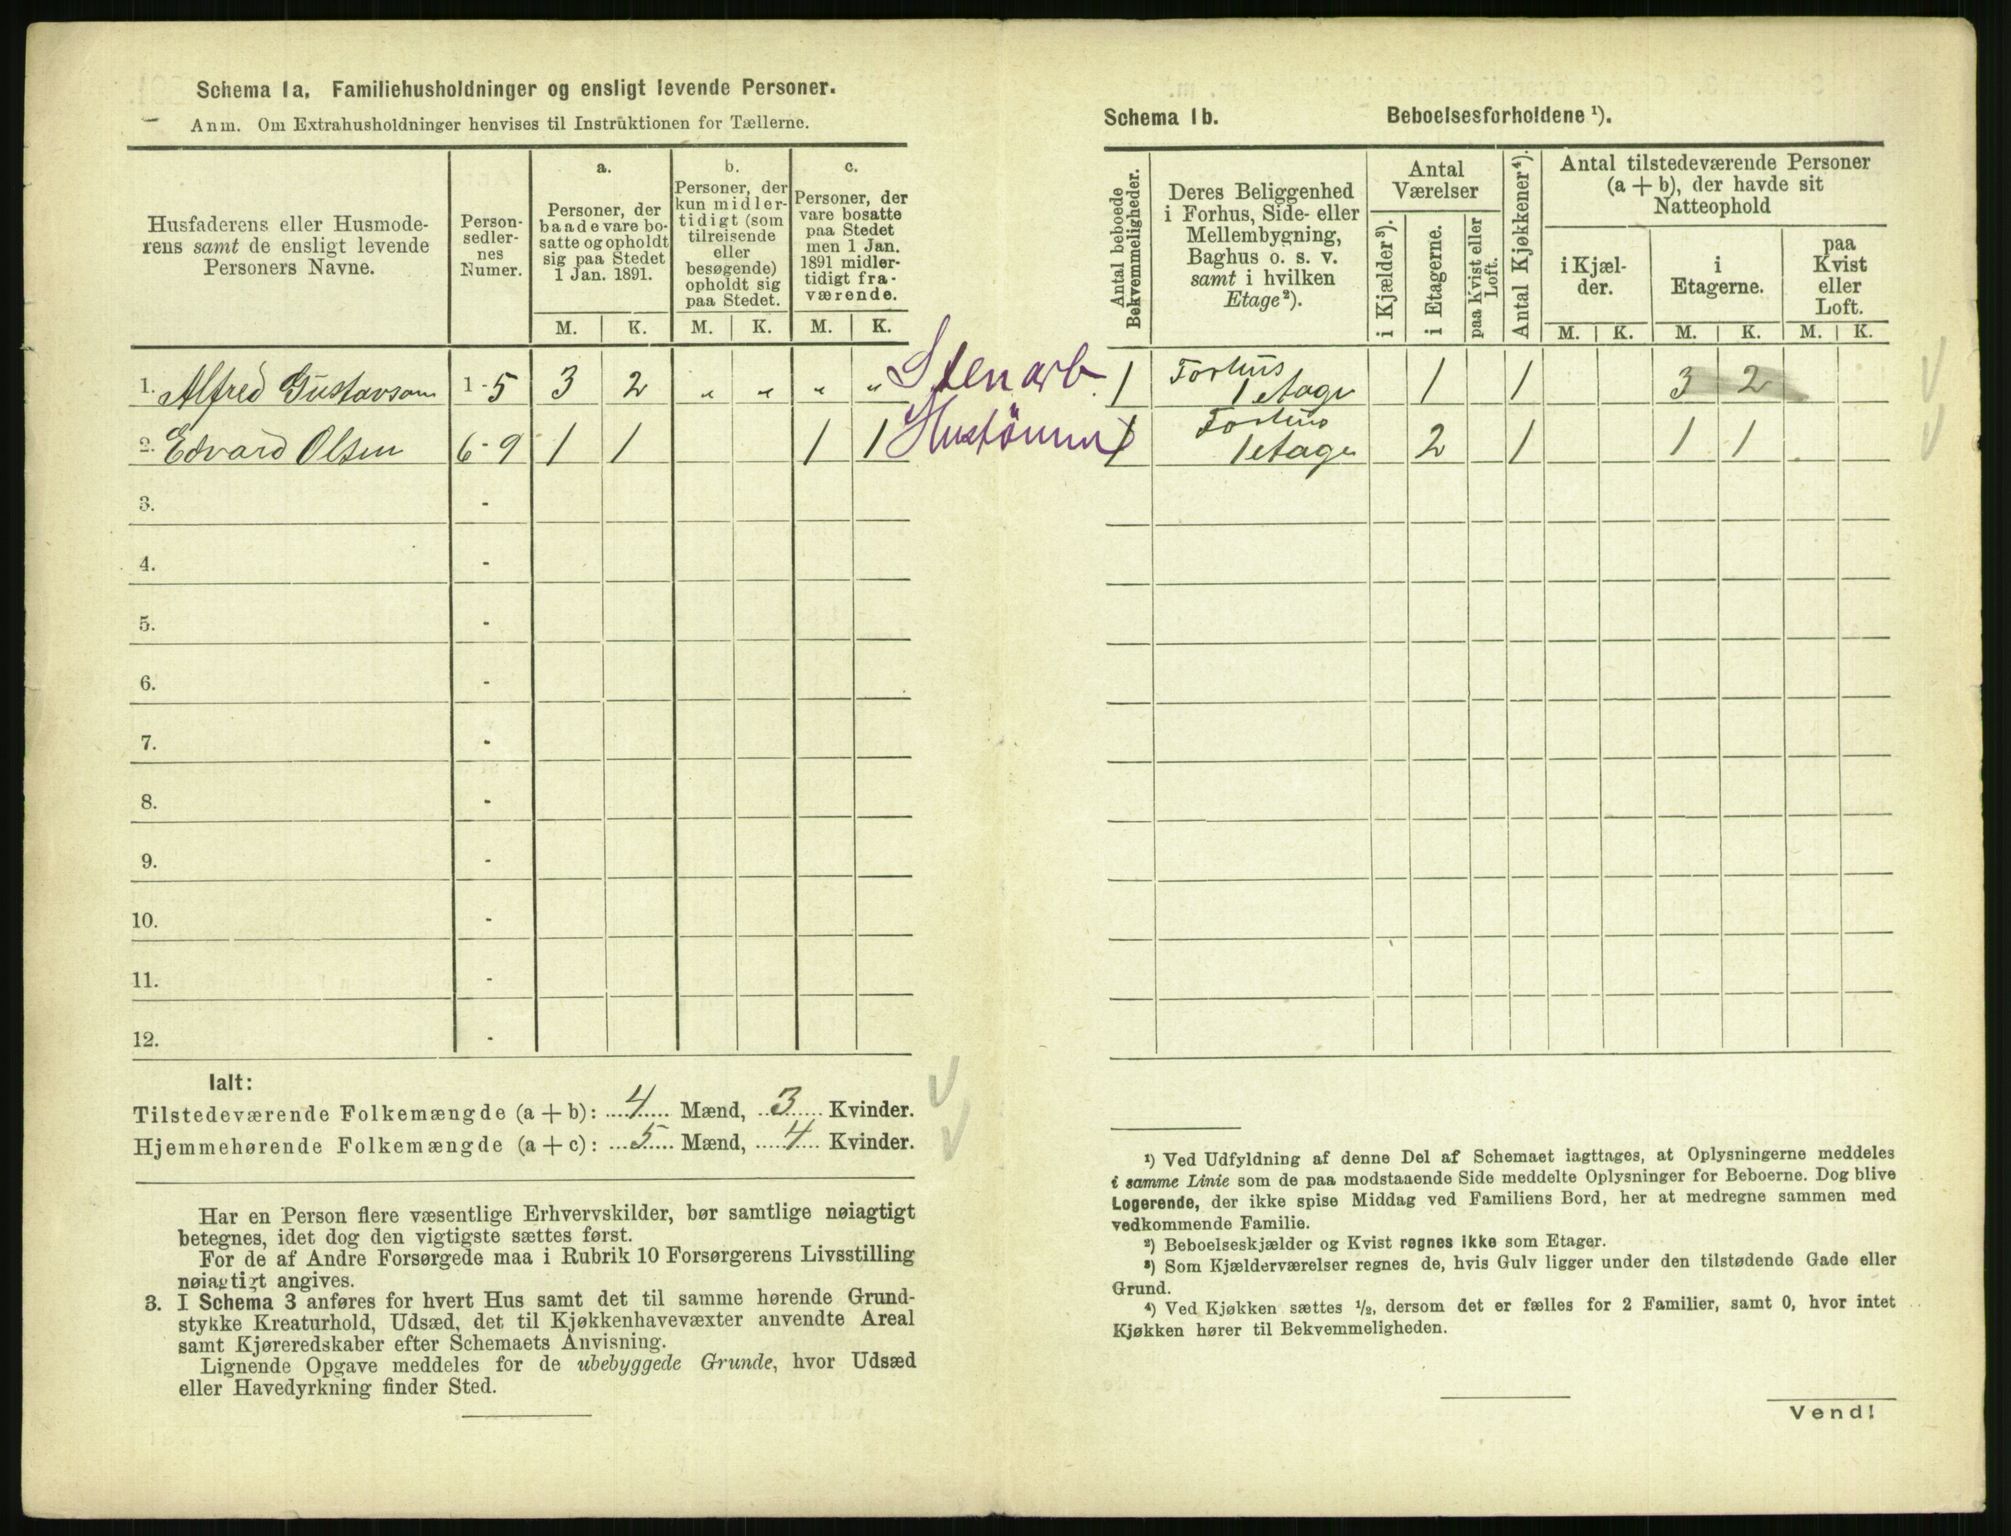 Schema 1a. Familiehusholdninger og ensligt levende Personer.
Anm. Om Extrahusholdninger henvises til Instruktionen for Tællerne.
Husfaderens eller Husmode-
rens samt de ensligt levende
Personers Navne.
Person-
sedler-
nes
Numer.
a.
Personer, der
baade vare bo-
satte og opholdt
sig paa Stedet
1 Jan. 1891.
b.
Personer, der
kun midler-
tidigt (som
tilreisende
eller
besøgende)
opholdt sig
paa Stedet.
c.
Personer, der
vare bosatte
paa Stedet
men 1 Jan.
1891 midler-
tidigt fra-
værende.
M. K. M. K. M. K.
1. Alfred Gustavson 1-5 3 2 „ „ „ „ Stenarb.
2. Edvard Olsen 6-9 1 1 1 1
3. -
4. -
5. -
6. -
7. -
8. -
9. -
10. -
11. -
12. -
Ialt:
Tilstedeværende Folkemængde (a + b): 4 Mænd, 3 Kvinder.
Hjemmehørende Folkemængde (a + c): 5 Mænd, 4 Kvinder.
Har en Person flere væsentlige Erhvervskilder, bør samtlige nøiagtigt
betegnes, idet dog den vigtigste sættes først.
For de af Andre Forsørgede maa i Rubrik 10 Forsørgerens Livsstilling
nøiagtigt angives.
3. I Schema 3 anføres for hvert Hus samt det til samme hørende Grund-
stykke Kreaturhold, Udsæd, det til Kjøkkenhavevæxter anvendte Areal
samt Kjøreredskaber efter Schemaets Anvisning.
Lignende Opgave meddeles for de ubebyggede Grunde, hvor Udsæd
eller Havedyrkning finder Sted.
Schema 1b. Beboelsesforholdene ¹).
Antal beboede
Bekvemmeligheder.
Deres Beliggenhed
i Forhus, Side- eller
Mellembygning,
Baghus o. s. v.
samt i hvilken
Etage²).
Antal
Værelser
i Kjælder³).
i Etagerne.
paa Kvist eller
Loft.
Antal Kjøkkener⁴).
Antal tilstedeværende Personer
(a + b), der havde sit
Natteophold
i Kjæl-
der.
i
Etagerne.
paa
Kvist
eller
Loft.
M. K. M. K. M. K.
1 Forhus
1 etage 1 1 3 2
1 Forhus
1 etage 2 1 1 1
¹) Ved Udfyldning af denne Del af Schemaet iagttages, at Oplysningerne meddeles
i samme Linie som de paa modstaaende Side meddelte Oplysninger for Beboerne. Dog blive
Logerende, der ikke spise Middag ved Familiens Bord, her at medregne sammen med
vedkommende Familie.
²) Beboelseskjælder og Kvist regnes ikke som Etager.
³) Som Kjælderværelser regnes de, hvis Gulv ligger under den tilstødende Gade eller
Grund.
⁴) Ved Kjøkken sættes ½, dersom det er fælles for 2 Familier, samt 0, hvor intet
Kjøkken hører til Bekvemmeligheden.
Vend!